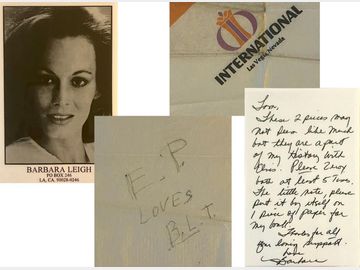 BARBARA LEIGH
PO BOX 246
LA, CA. 90028-0246
INTERNATIONAL
Las Vegas, Nevada
E.P.
LOVES
B.L.T.
These 2 pieces may
not seem like much
but they are a part
of my History with
Elvis. Please Xerox
both at least 5 Times.
The little note, please
put it by itself on
1 piece of paper for
my book.
Thanks for all
your loving support.
Love
Barbara